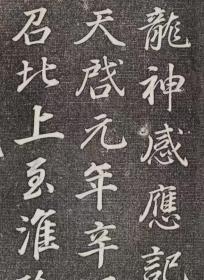 龍神感應記
天啓元年辛
召北上至淮